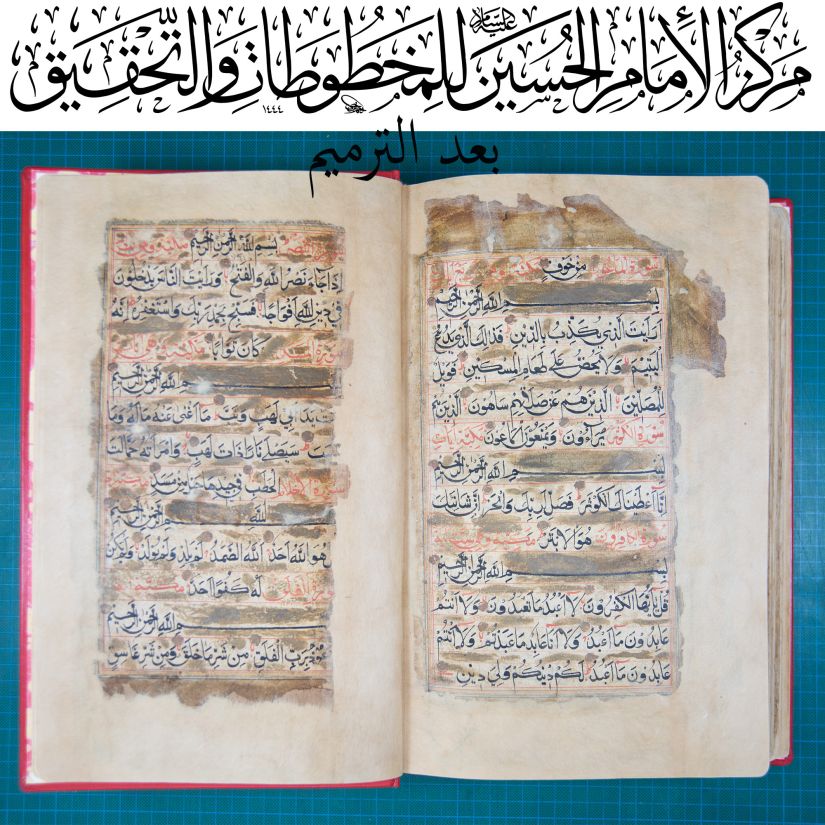 مركز الإمام الحسين عليه السلام للمخطوطات والتحقيق
١٤٤٤
بعد الترميم
سورة الماعون من خوف
بسم الله الرحمن الرحيم
ارايت الذي يكذب بالدين فذلك الذي يدع
اليتيم ولا يحض على طعام المسكين فويل
للمصلين الذين هم عن صلاتهم ساهون الذين هم
سورة الكوثر يراءون ويمنعون الماعون مكية
بسم الله الرحمن الرحيم
انا اعطيناك الكوثر فصل لربك وانحر ان شانئك
سورة الكافرون هو الابتر مكية
بسم الله الرحمن الرحيم
قل يا ايها الكافرون لا اعبد ما تعبدون ولا انتم
عابدون ما اعبد ولا انا عابد ما عبدتم ولا انتم
عابدون ما اعبد لكم دينكم ولي دين
بسم الله الرحمن الرحيم
اذا جاء نصر الله والفتح ورايت الناس يدخلون
في دين الله افواجا فسبح بحمد ربك واستغفره انه
كان توابا
الله الرحمن الرحيم
تبت يدا ابي لهب وتب ما اغنى عنه ماله وما
كسب سيصلى نارا ذات لهب وامراته حمالة
الحطب في جيدها حبل من مسد
الله الرحمن الرحيم
هو الله احد الله الصمد لم يلد ولم يولد ولم يكن
سورة الفلق له كفوا احد مكية
الله الرحمن الرحيم
برب الفلق من شر ما خلق ومن شر غاسق